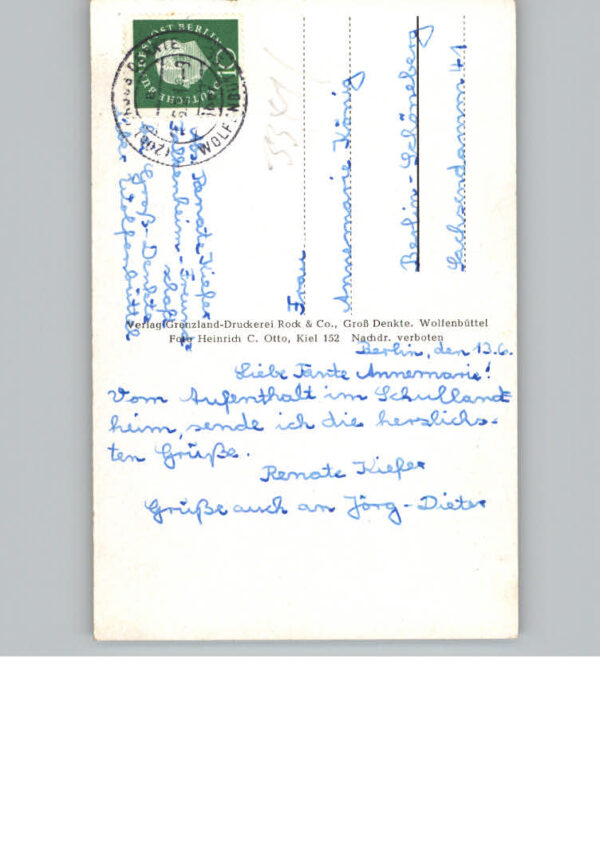 DEUTSCHE BUNDESPOST BERLIN
10
GROSS DENKTE
WOLFENBÜTTEL
(20b)
3341
Abs. Renate Kiefer
Falkenheim-Freund-
schaft
Groß-Denkte
über Wolfenbüttel
Frau
Annemarie König
Berlin-Schöneberg
Sachsendamm 41
Verlag Grenzland-Druckerei Rock & Co., Groß Denkte, Wolfenbüttel
Foto Heinrich C. Otto, Kiel 152 Nachdr. verboten
Berlin, den 13.6.
Liebe Tante Annemarie!
Vom Aufenthalt im Schulland
heim, sende ich die herzlichs-
ten Grüße.
Renate Kiefer
Grüße auch an Jörg-Dieter